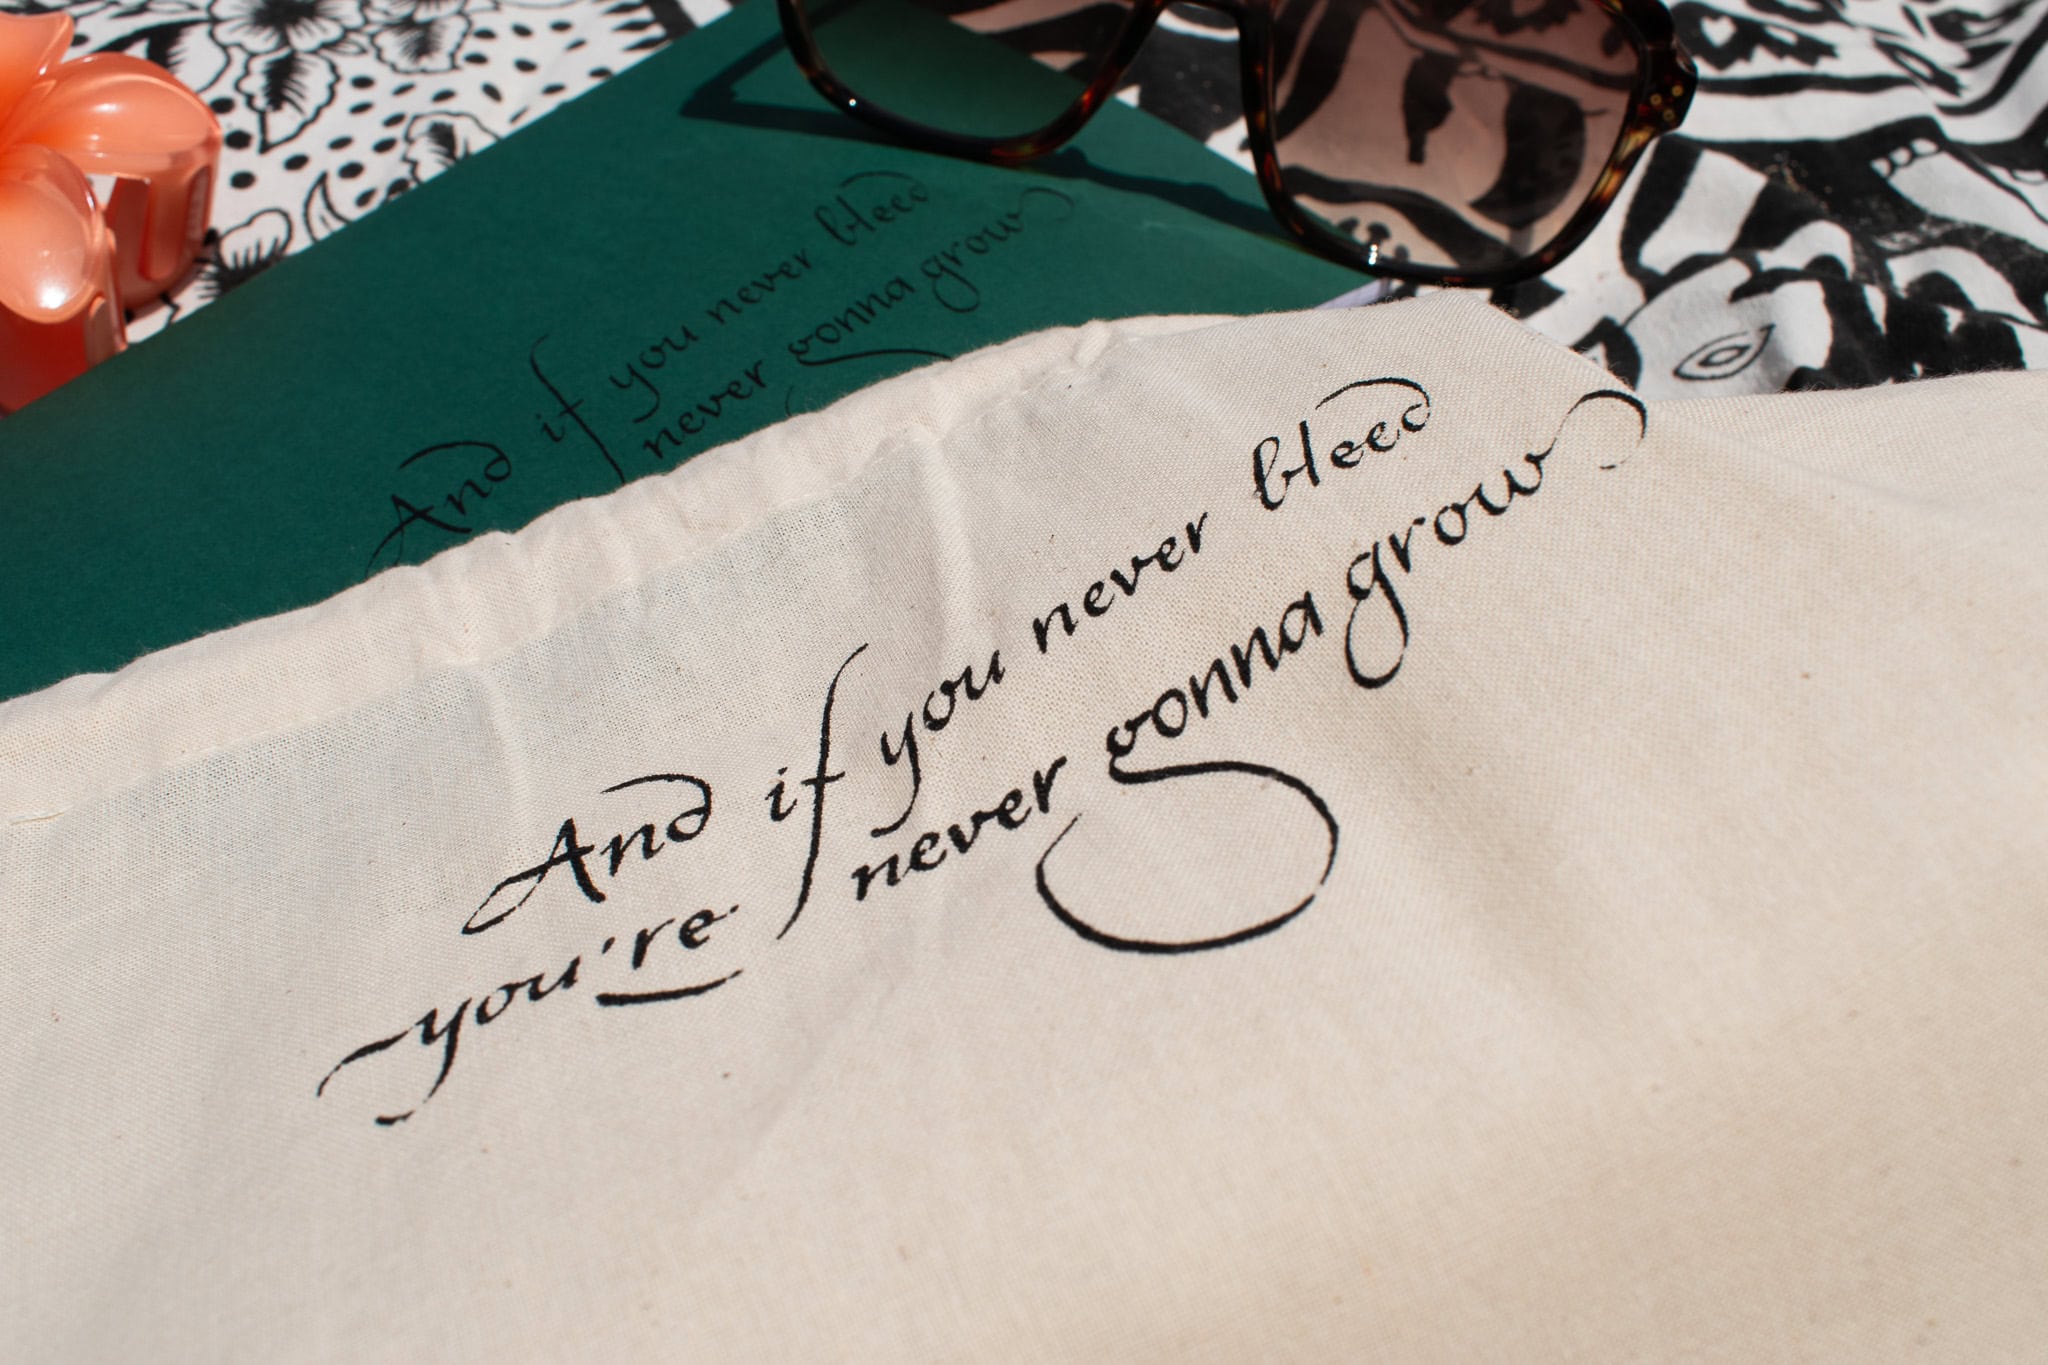 And if you never bleed
never gonna grow
And if you never bleed
you're never gonna grow